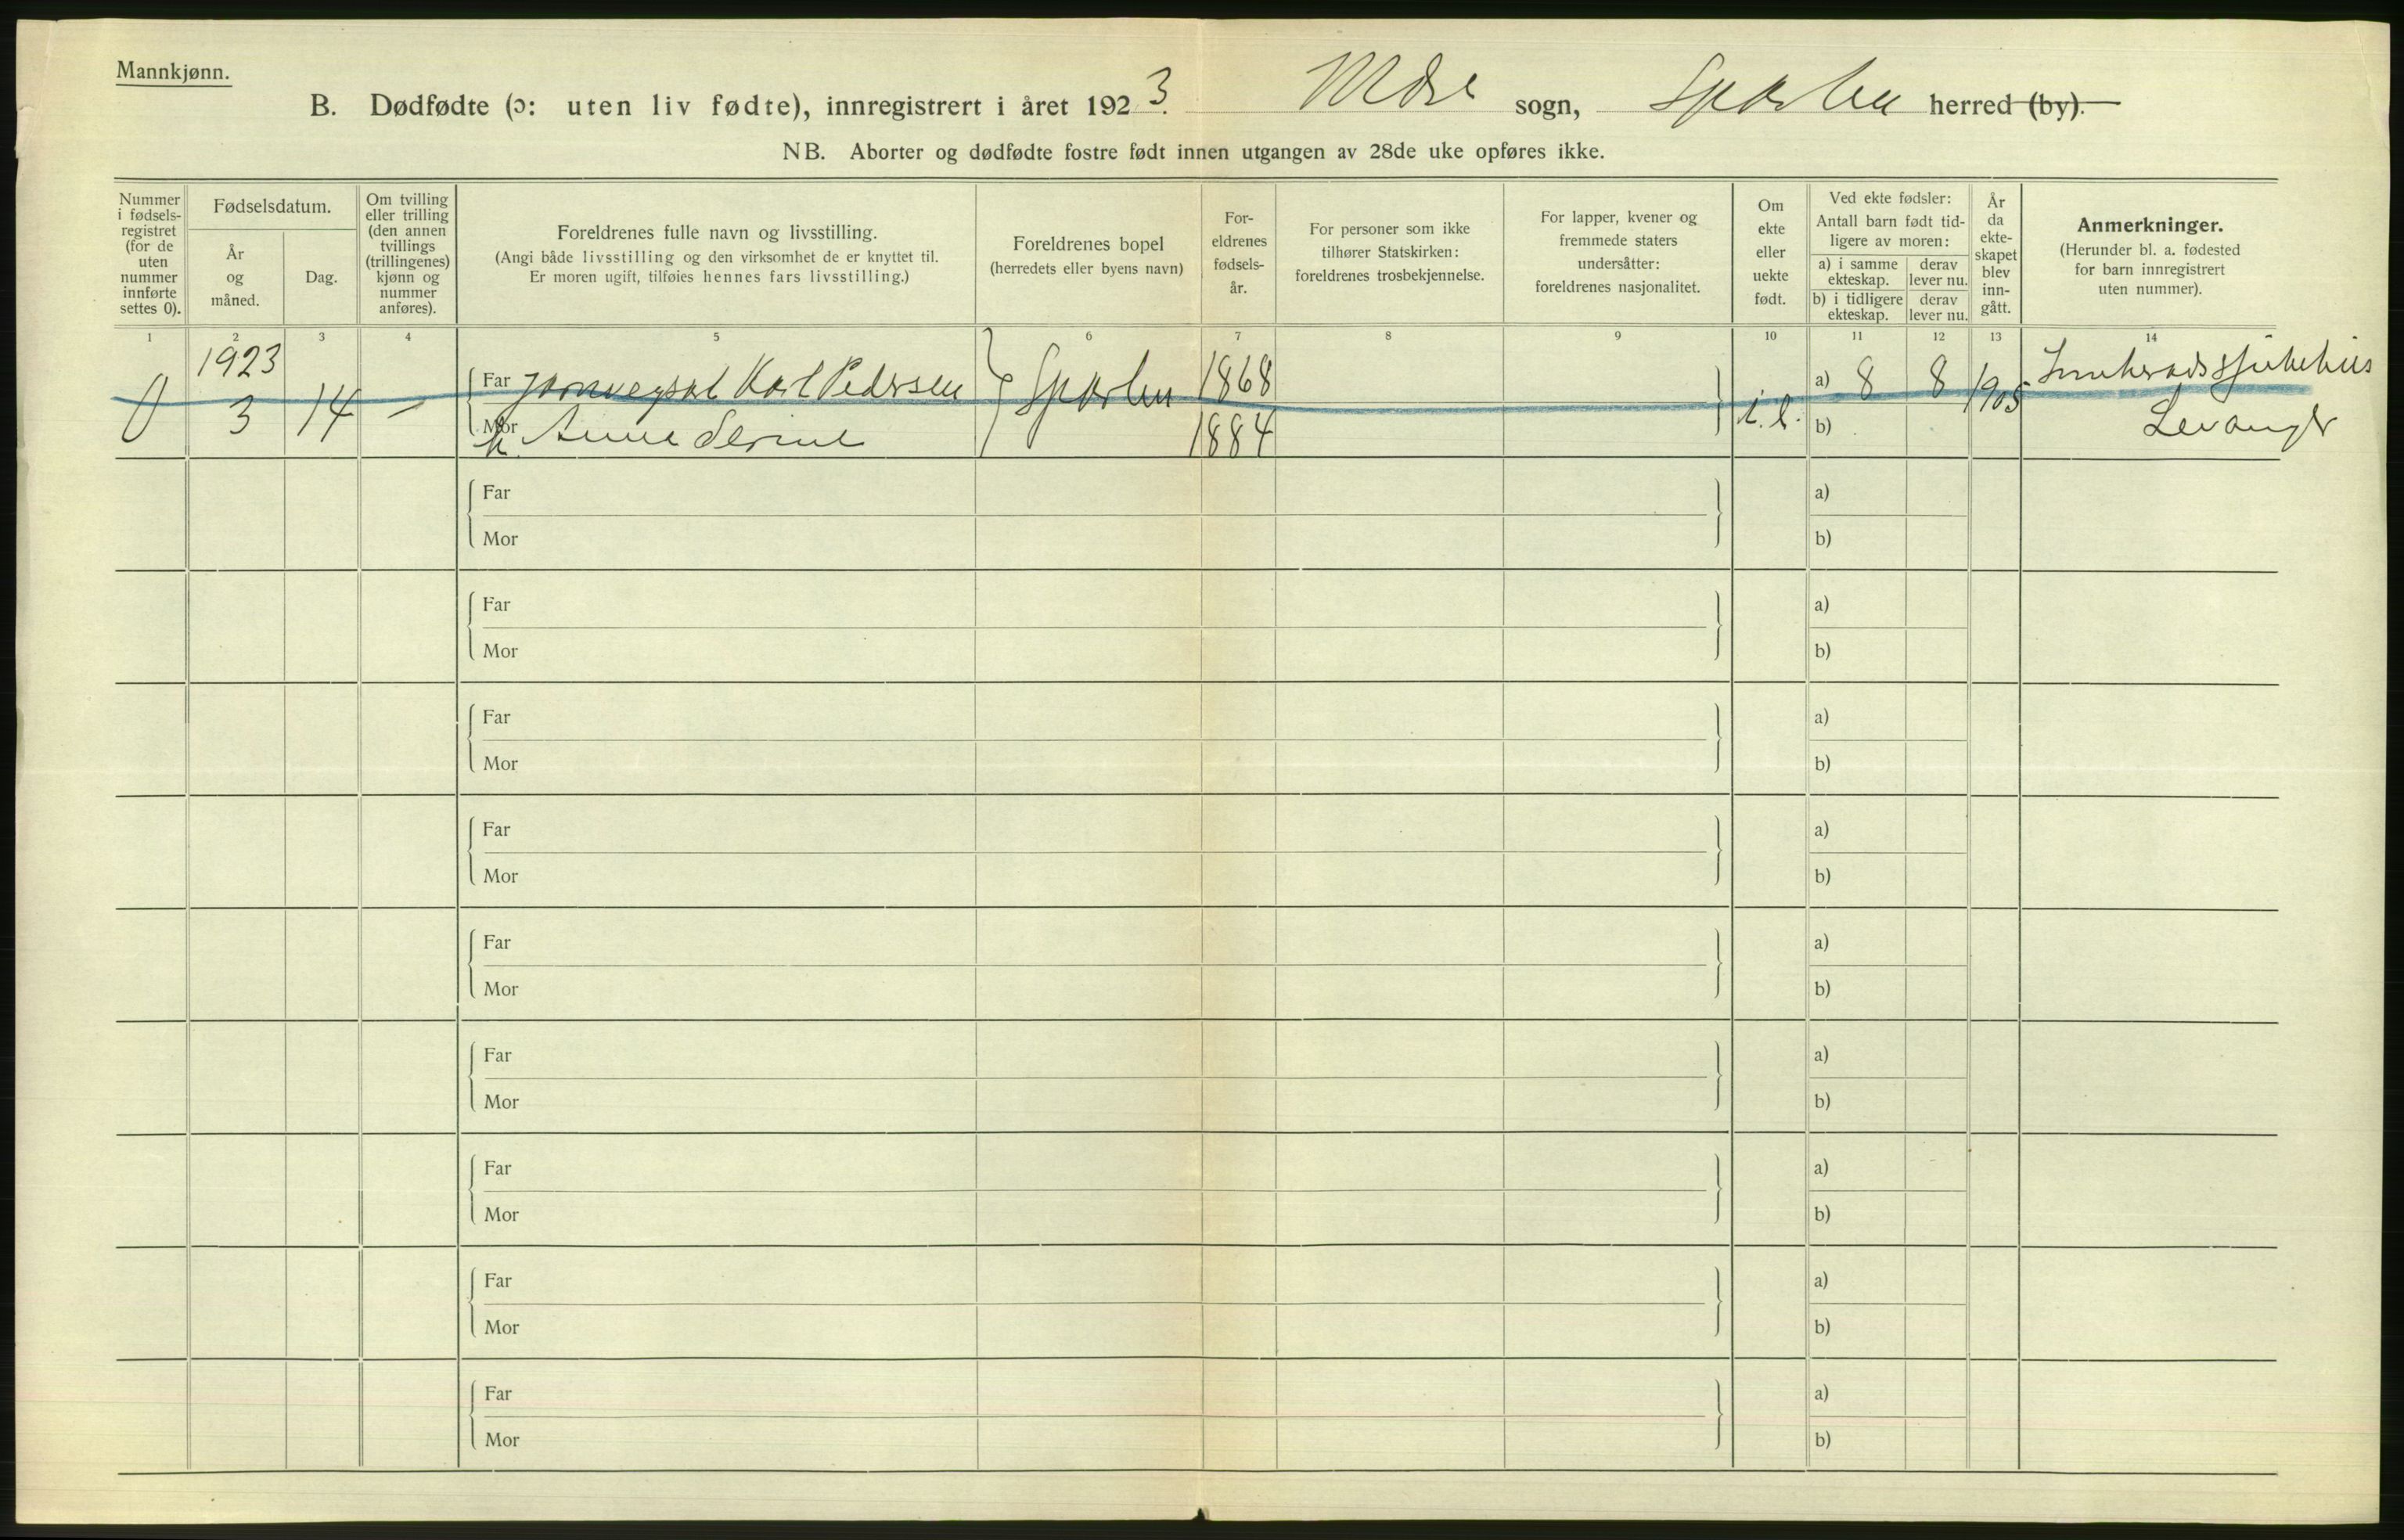 Mannkjønn.
B. Dødfødte (ɔ: uten liv fødte), innregistrert i året 1923. Mære sogn, Sparbu herred (by).
NB. Aborter og dødfødte fostre født innen utgangen av 28de uke opføres ikke.
Nummer i fødsels-registret (for de uten nummer innførte settes 0).
Fødselsdatum.
År og måned.
Dag.
Om tvilling eller trilling (den annen tvillings (trillingenes) kjønn og nummer anføres).
Foreldrenes fulle navn og livsstilling.
(Angi både livsstilling og den virksomhet de er knyttet til.
Er moren ugift, tilføies hennes fars livsstilling.)
Foreldrenes bopel
(herredets eller byens navn)
For-eldrenes fødsels-år.
For personer som ikke tilhører Statskirken: foreldrenes trosbekjennelse.
For lapper, kvener og fremmede staters undersåtter: foreldrenes nasjonalitet.
Om ekte eller uekte født.
Ved ekte fødsler:
Antall barn født tid-ligere av moren:
a) i samme ekteskap.
derav lever nu.
b) i tidligere ekteskap.
derav lever nu.
År da ekte-skapet blev inn-gått.
Anmerkninger.
(Herunder bl. a. fødested for barn innregistrert uten nummer).
1 2 3 4 5 6 7 8 9 10 11 12 13 14
1923
Far Karl Pedersen Sparbu 1868 a) 8 8 1905 Innherads sjukehus
0 3 14 — Mor h. Anne Serine 1884 b) Levanger
Far a)
Mor b)
Far a)
Mor b)
Far a)
Mor b)
Far a)
Mor b)
Far a)
Mor b)
Far a)
Mor b)
Far a)
Mor b)
Far a)
Mor b)
Far a)
Mor b)